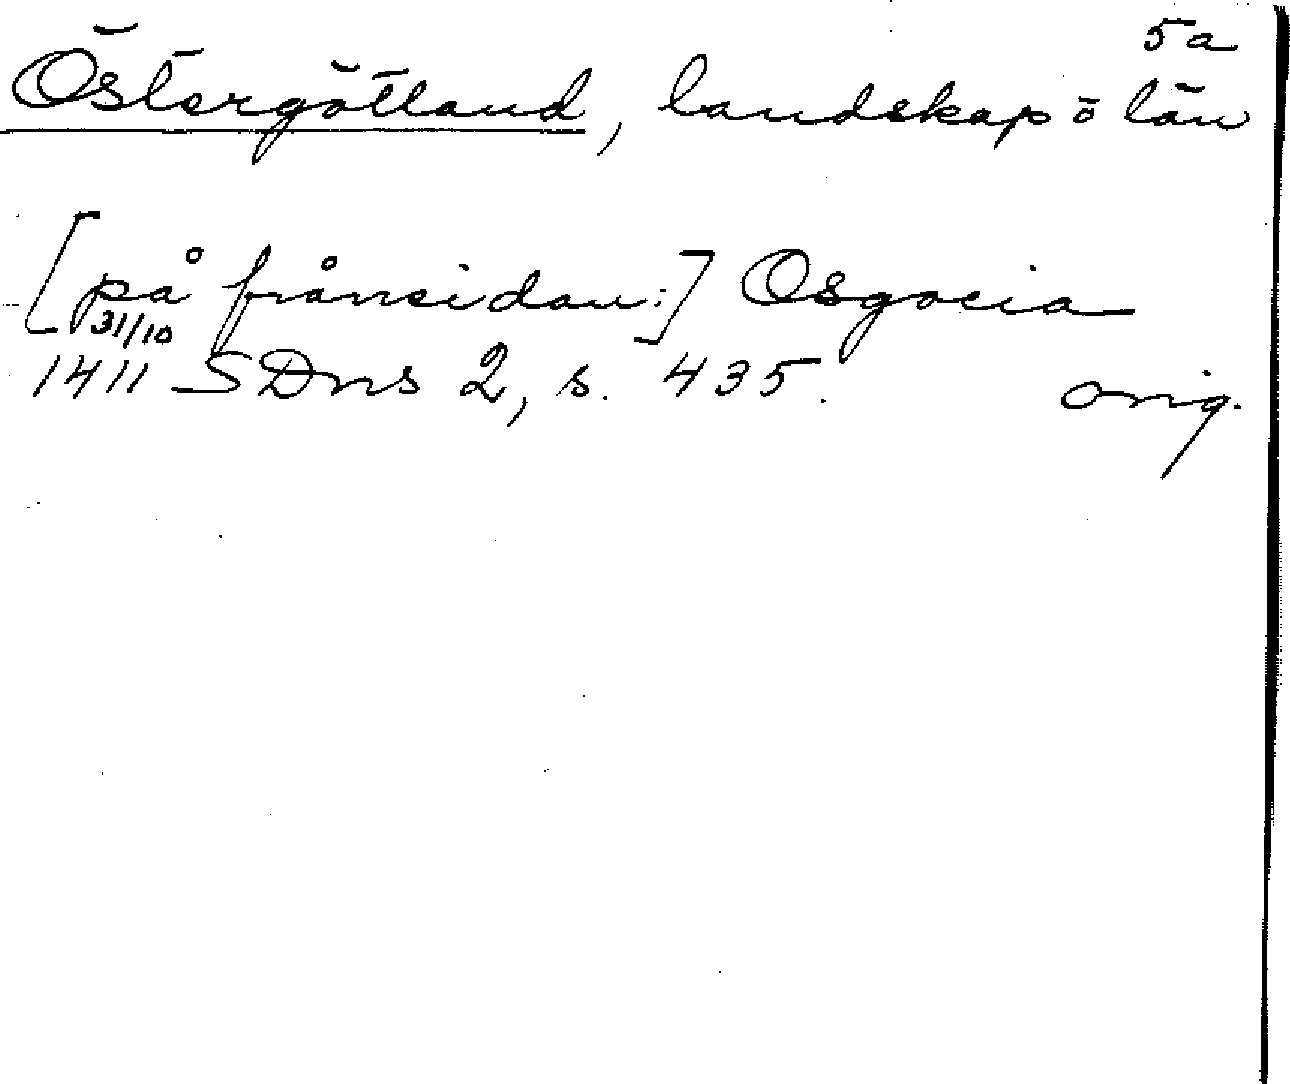 5a
Östergötland, landskap o län
[på frånsidan:] Osgocia
31/10
1411 SDns 2, s. 435. orig.